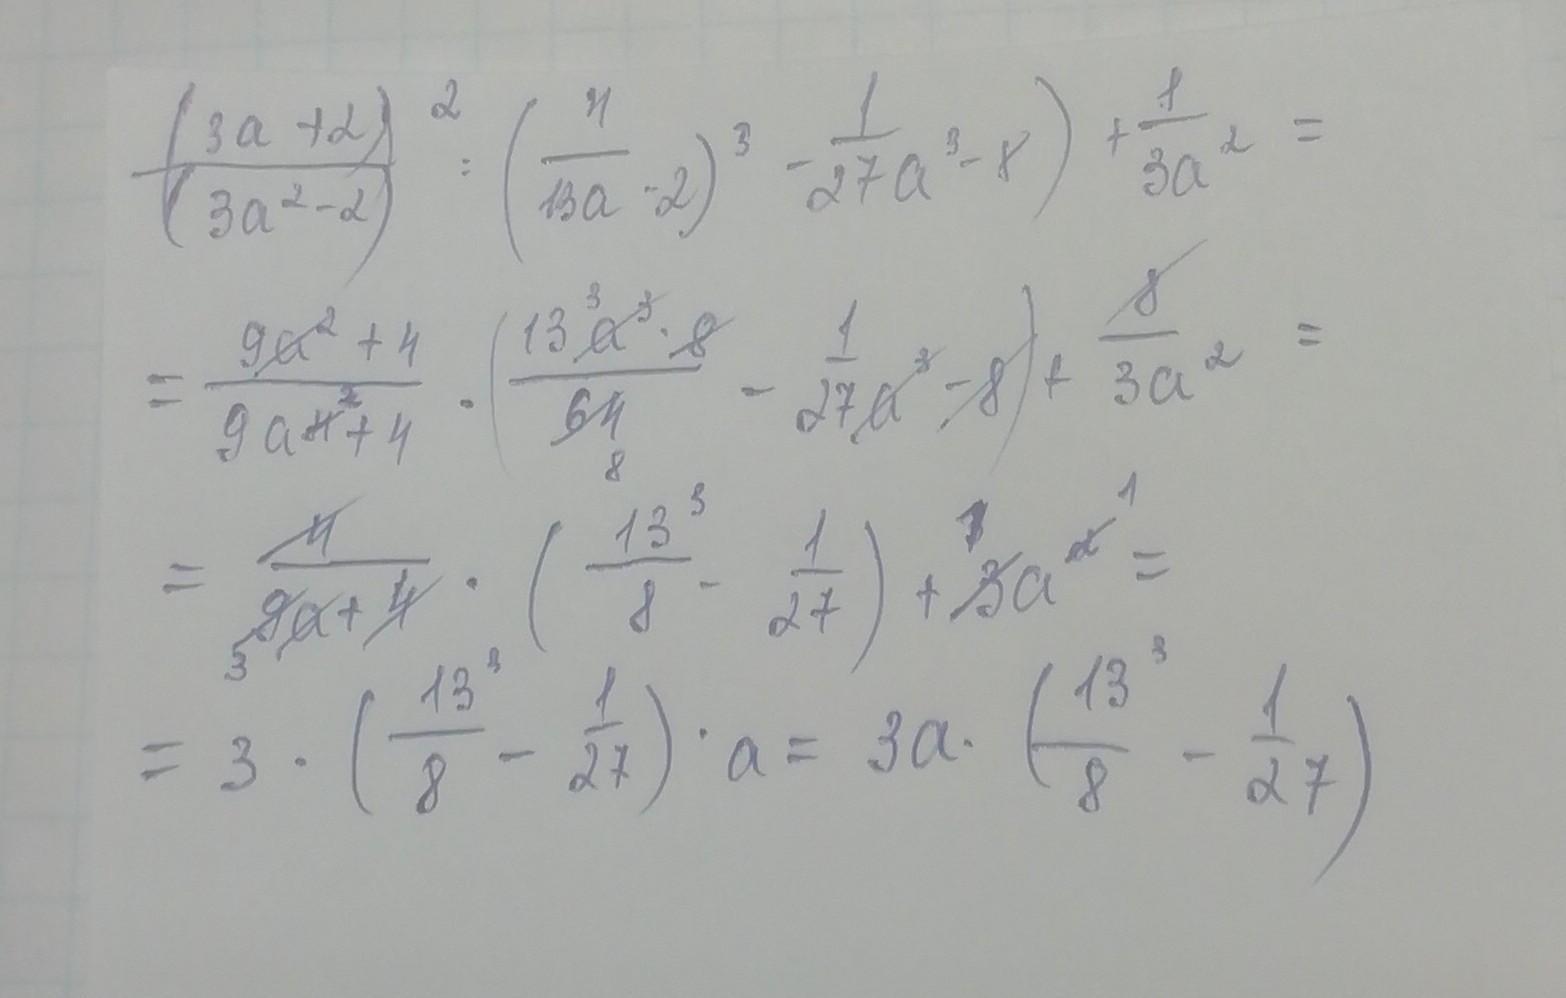 (3a + 2)² / (3a² - 2) : ((4 / 13a - 2)³ - 1 / 27a³ - 8) + 1 / 3a² =
= 9a² + 4 / 9a⁴² + 4 · (13³a³ · 8 / 64 8 - 1 / 27a³ - 8) + 8 / 3a² =
= 4 / 9a + 4 3 · (13³ / 8 - 1 / 27) + 1 3a² 1 =
= 3 · (13³ / 8 - 1 / 27) · a = 3a · (13³ / 8 - 1 / 27)